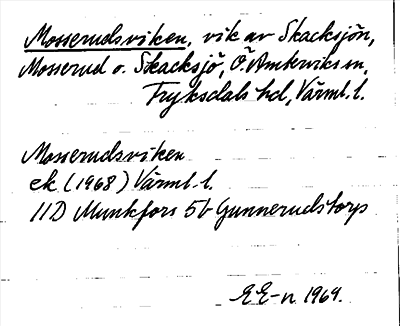 Mosserudsviken, vik av Skacksjön,
Mosserud o. Skacksjö, Ö. Ämterviks sn,
Fryksdals hd, Värml. l.
Mosserudsviken
ek (1968) Värml. l.
11D Munkfors 5b Gunnerudstorp
EE-n 1969.